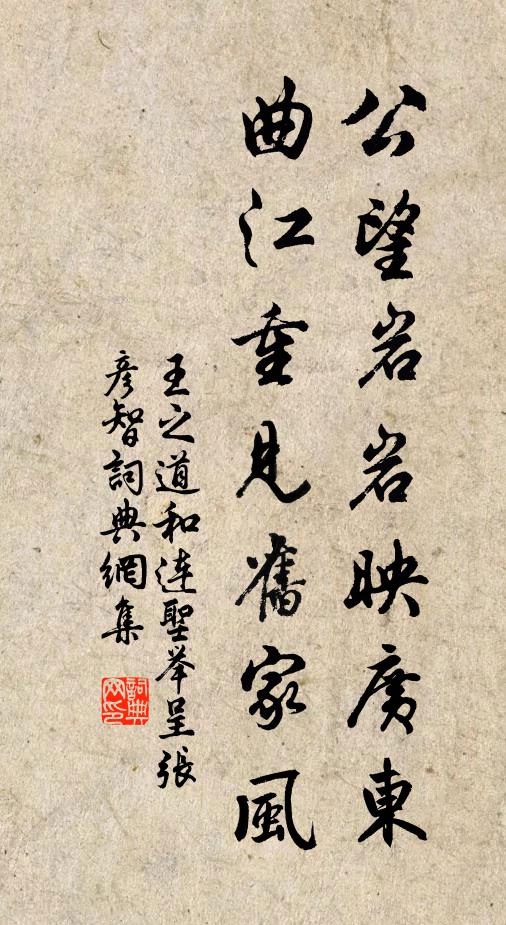 公望岩岩映廣東
曲江重見舊家風
王之道和连聖举呈張
彦智詞典網集
詞典
网印